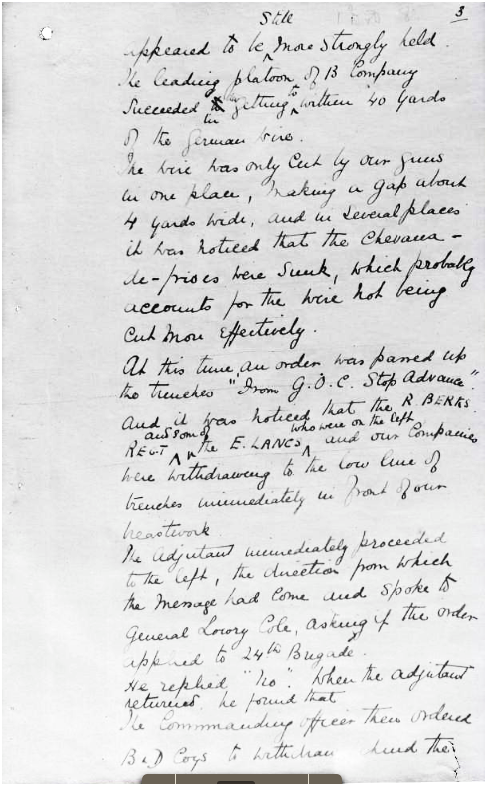 3
Still
appeared to be ^ more strongly held.
The leading platoon of B Company
succeeded in getting to within 40 yards
of the German wire.
The wire was only cut by our guns
in one place, making a gap about
4 yards wide, and in several places
it was noticed that the Chevaux-
de-frises were sunk, which probably
accounts for the wire not being
cut more effectively.
At this time, an order was passed up
the trenches "From G.O.C. Stop Advance".
And it was noticed that the R. BERKS.
and some of who were on the left
REGT ^ the E. LANCS ^ and our Companies
were withdrawing to the low line of
trenches immediately in front of our
breastwork.
The Adjutant immediately proceeded
to the left, the direction from which
the message had come and spoke to
General Lowry Cole, asking if the order
applied to 24th Brigade.
He replied "No". When the adjutant
returned he found that
The Commanding officer then ordered
B & D Coys to withdraw the